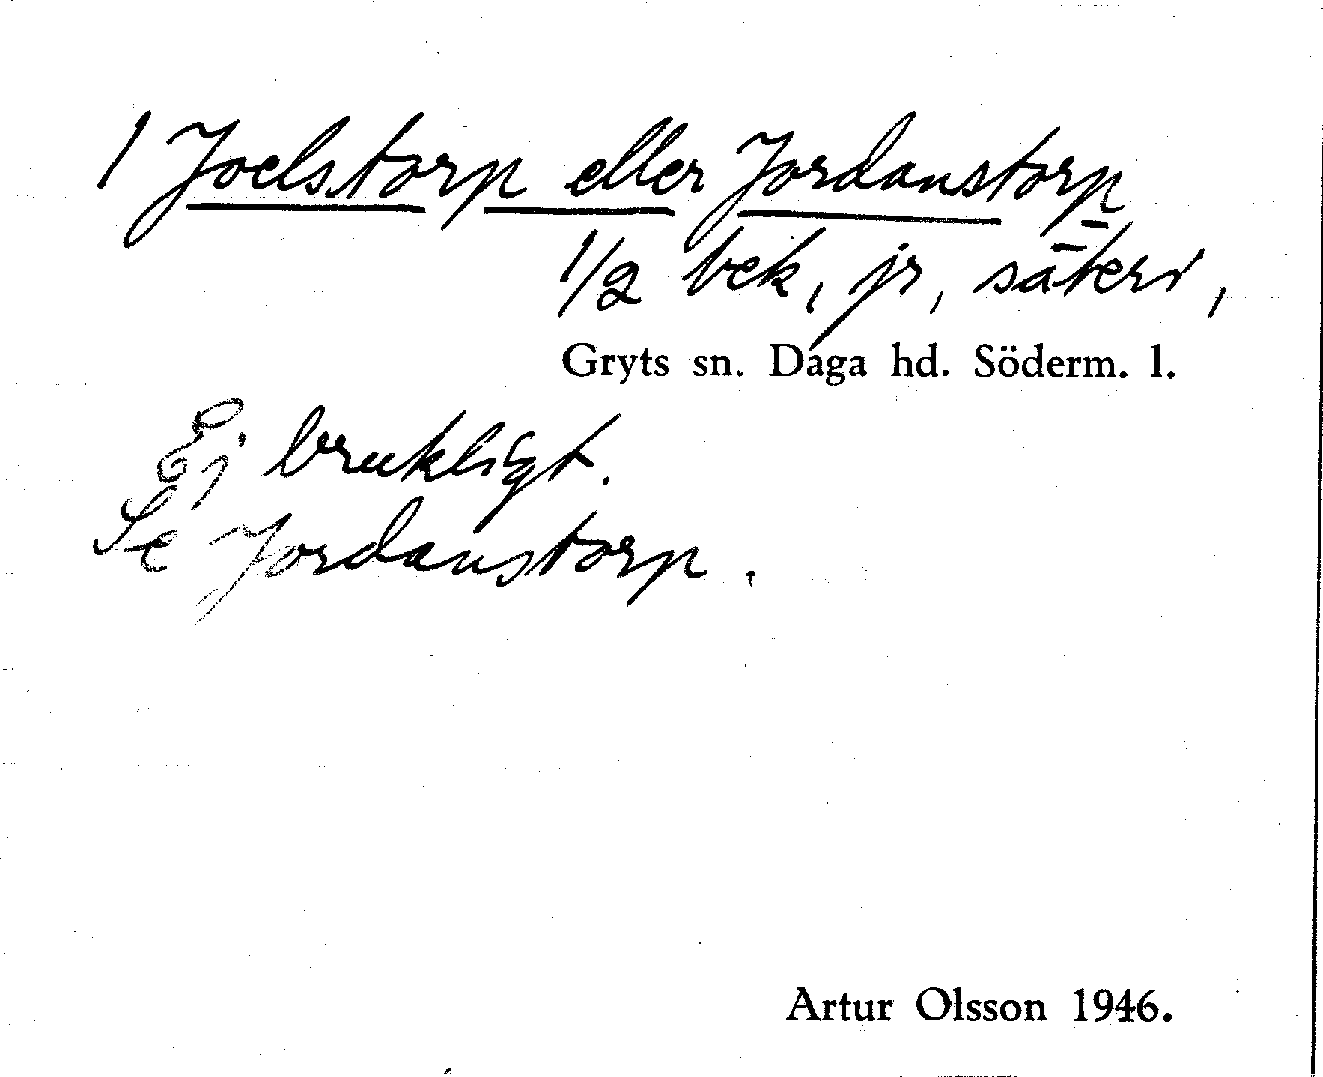 1 Joelstorp eller Jordanstorp
1/2 bek, jr, säteri,
Gryts sn. Daga hd. Söderm. l.
Ej brukligt.
Se Jordanstorp.
Artur Olsson 1946.